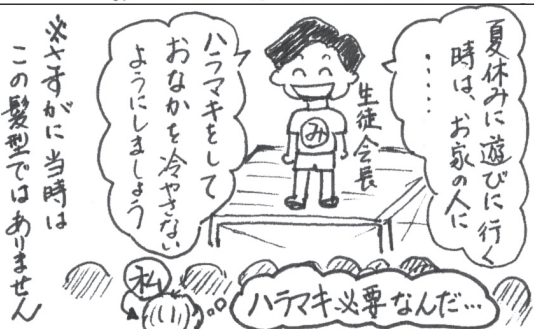 夏休みに遊びに行く
時は、お家の人に
……
生徒会長
み
ハラマキをして
おなかを冷やさない
ようにしましょう
※さすがに当時は
この髪型ではありません
私
ハラマキ必要なんだ…